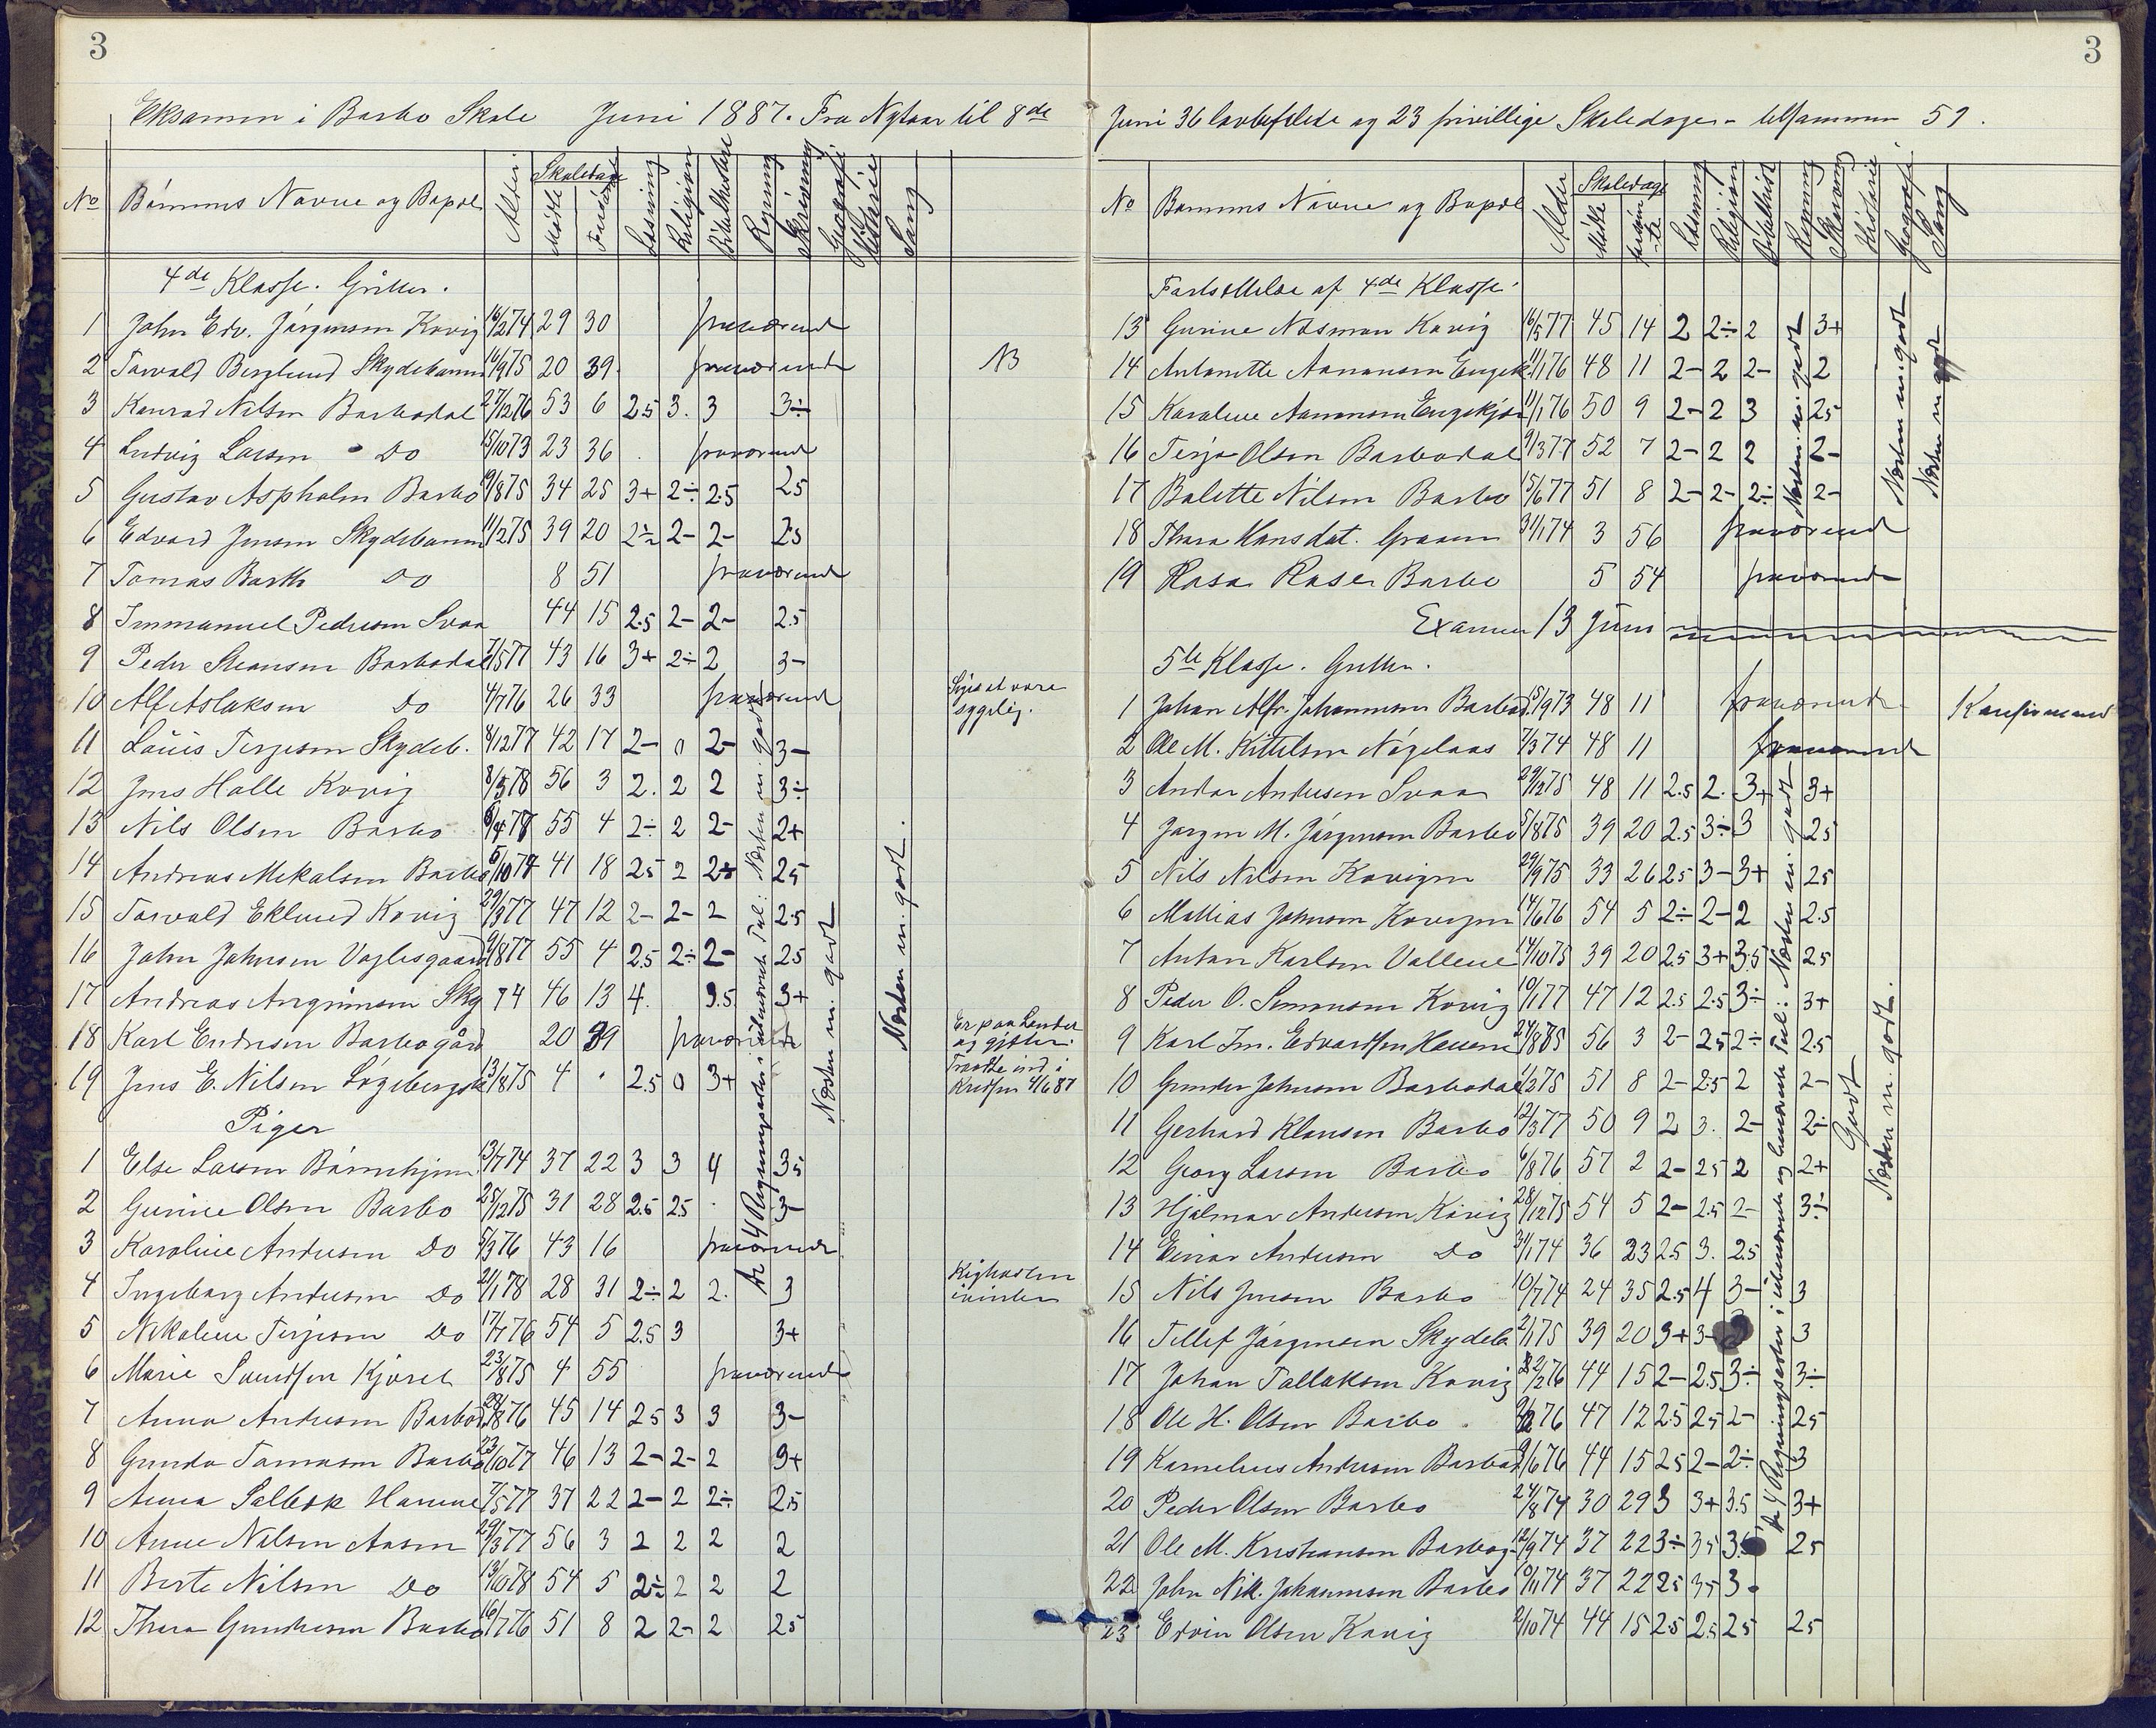 3
Eksamen i Barbo Skole Juni 1887. Fra Nytaar til 8de
No Børnenes Navne og Bopæl Alder Skoledage Mødte Forsømte Læsning Religion Bibelhistorie Regning Skrivning Geografi Historie Sang
4de Klasse. Gutter.
1 John Edv. Jørgensen Kovig 16/2 74 29 30 fraværende
2 Torvald Berglund Skydebanen 16/9 75 20 39 fraværende NB
3 Konrad Nilsen Barbodal 27/12 76 53 6 2.5 3. 3 3÷
4 Ludvig Larsen Do 15/10 73 23 36 fraværende
5 Gustav Aspholm Barbo 19/8 75 34 25 3+ 2÷ 2.5 2.5
6 Edvard Jensen Skydebanen 11/2 75 39 20 2÷ 2- 2- 2.5
7 Tomas Barth Do 8 51 fraværende
8 Immanuel Pedersen Svaa 44 15 2.5 2- 2- 2.5
9 Peder Steansen Barbodal 7/5 77 43 16 3+ 2÷ 2 3-
10 Alf Aslaksen Do 4/7 76 26 33 fraværende Siges at være sygelig.
11 Louis Terjesen Skydeb. 8/12 77 42 17 2- 0 2- 3-
12 Jens Halle Kovig 8/3 78 56 3 2. 2 2 3÷
13 Nils Olsen Barbo 6/4 78 55 4 2÷ 2 2- 2+
14 Andreas Mekalsen Barbo 5/10 74 41 18 2.5 2 2÷ 2.5
15 Torvald Eklund Kovig 29/3 77 47 12 2- 2- 2 2.5
16 John Johnsen Voglesgaard 9/8 77 55 4 2.5 2÷ 2- 2.5
17 Andreas Arguinsen Sky 74 46 13 4. 3.5 3+
18 Karl Endresen Barbogård 20 39 fraværende Er paa Landet og gjæter.
19 Jens E. Nilsen Løgebergsk 13/8 75 4 · 2.5 0 3+ Traadte ind i Kredsen 4/6 87
Piger
1 Else Larsen Børnehjem 13/7 74 37 22 3 3 4 3.5
2 Gurine Olsen Barbo 25/12 75 31 28 2.5 2.5 · 3-
3 Karoline Andersen Do 5/3 76 43 16 fraværende
4 Ingeborg Andersen Do 21/1 78 28 31 2÷ 2 2. 3 Kighosten ivinter
5 Nikoline Terjesen Do 17/7 76 54 5 2.5 3 3+
6 Marie Svendsen Kjøset 23/8 75 4 55 fraværende
7 Anna Andersen Barbod. 28/8 76 45 14 2.5 3 3 3-
8 Gunda Tomasen Barbo 23/10 77 46 13 2- 2- 2 3+
9 Anna Salbok Havne 7/5 77 37 22 2- 2 2÷ 2.5
10 Anne Nilsen Aasen 29/3 77 56 3 2 2 2 2
11 Berte Nilsen Do 13/10 78 54 5 2÷ 2 2 2
12 Thora Gundersen Barbo 16/7 76 51 8 2 2- 2 2.5
De 4 Regningsarter i ubenævnte Tal: Næsten m. godt
Næsten m. godt
Næsten m. godt.
3
Juni 36 lovbefalede og 23 frivillige Skoledage - tilsammen 59.
No Børnenes Navne og Bopæl Alder Skoledage Mødte forsømte Læsning Religion Bibelhist Regning Skrivning Historie Geografi Sang
Fortsættelse af 4de Klasse.
13 Gurine Nosman Kovig 16/5 77 45 14 2 2÷ 2 3+
14 Antonette Aanonsen Engek. 11/1 76 48 11 2- 2 2- 2
15 Karoline Aanonsen Engekjær 11/1 76 50 9 2- 2 3 2.5
16 Terje Olsen Barbodal 9/3 77 52 7 2- 2 2 2-
17 Bolette Nilsen Barbo 15/6 77 51 8 2- 2- 2÷ 2-
18 Thora Hansdat. Graaen 31/1 74 3 56 fraværend
19 Rosa Rose Barbo 5 54 fraværende
Næsten m. godt
Næsten m. godt
Næsten m godt
Examen 13 Juni
5te Klasse. Gutter.
1 Johan Alfr. Johannesen Barbod. 15/9 73 48 11 fraværende Konfirmand
2 Ole M. Kittelsen Nøgelaas 7/3 74 48 11 fraværend
3 Andor Andersen Svaa 29/12 75 48 11 2.5 2. 3+ 3+
4 Jørgen M. Jørgensen Barbo 5/8 75 39 20 2.5 3÷ 3 2.5
5 Nils Nilsen Kovigen 29/9 75 33 26 2.5 3- 3+ 2.5
6 Mathias Johnsen Kovigen 14/6 76 54 5 2÷ 2- 2 2.5
7 Anton Karlsen Vollene 14/10 75 39 20 2.5 3+ 3.5 2.5
8 Peder O. Simonsen Kovig 10/1 77 47 12 2.5 2.5 3÷ 3+
9 Karl Im. Edvardsen Havne 24/8 85 56 3 2- 2.5 2÷ 2.5
10 Gunder Johnsen Barbodal 1/2 75 51 8 2- 2.5 2 2-
11 Gerhard Klausen Barbo 12/3 77 50 9 2 3. 2- 2÷
12 Georg Larsen Barbo 6/8 76 57 2 2- 2.5 2 2+
13 Hjalmar Andersen Kovig 28/12 75 54 5 2- 2.5 2- 3÷
14 Einar Andersen Do 31/1 74 36 23 2.5 3. 2.5
15 Nils Jensen Barbo 10/7 74 24 35 2.5 4 3- 3
16 Tellef Jørgensen Skydeb 2/1 75 39 20 3+ 3- 3
17 Johan Tallaksen Kovig 22/2 76 44 15 2- 2.5 3÷ 3÷
18 Ole H. Olsen Barbo 76 47 12 2.5 2.5 2- 2.5
19 Kornelius Andersen Barbod 9/6 76 44 15 2.5 2- 2÷ 3
20 Peder Olsen Barbo 24/8 74 30 29 3 3+ 3.5 3+
21 Ole M. Kristiansen Barbog. 12/9 74 37 22 3÷ 3.5 3. 2.5
22 John Nik. Johannesen Barbo 10/11 74 37 22 2.5 3.5 3.
23 Edvin Olsen Kovig 2/10 74 44 15 2.5 2.5 2.5 2.5
De 4 Regningsarter i ubenævnte og benævnte Tal: Næsten m godt
Godt
Næsten m. godt.